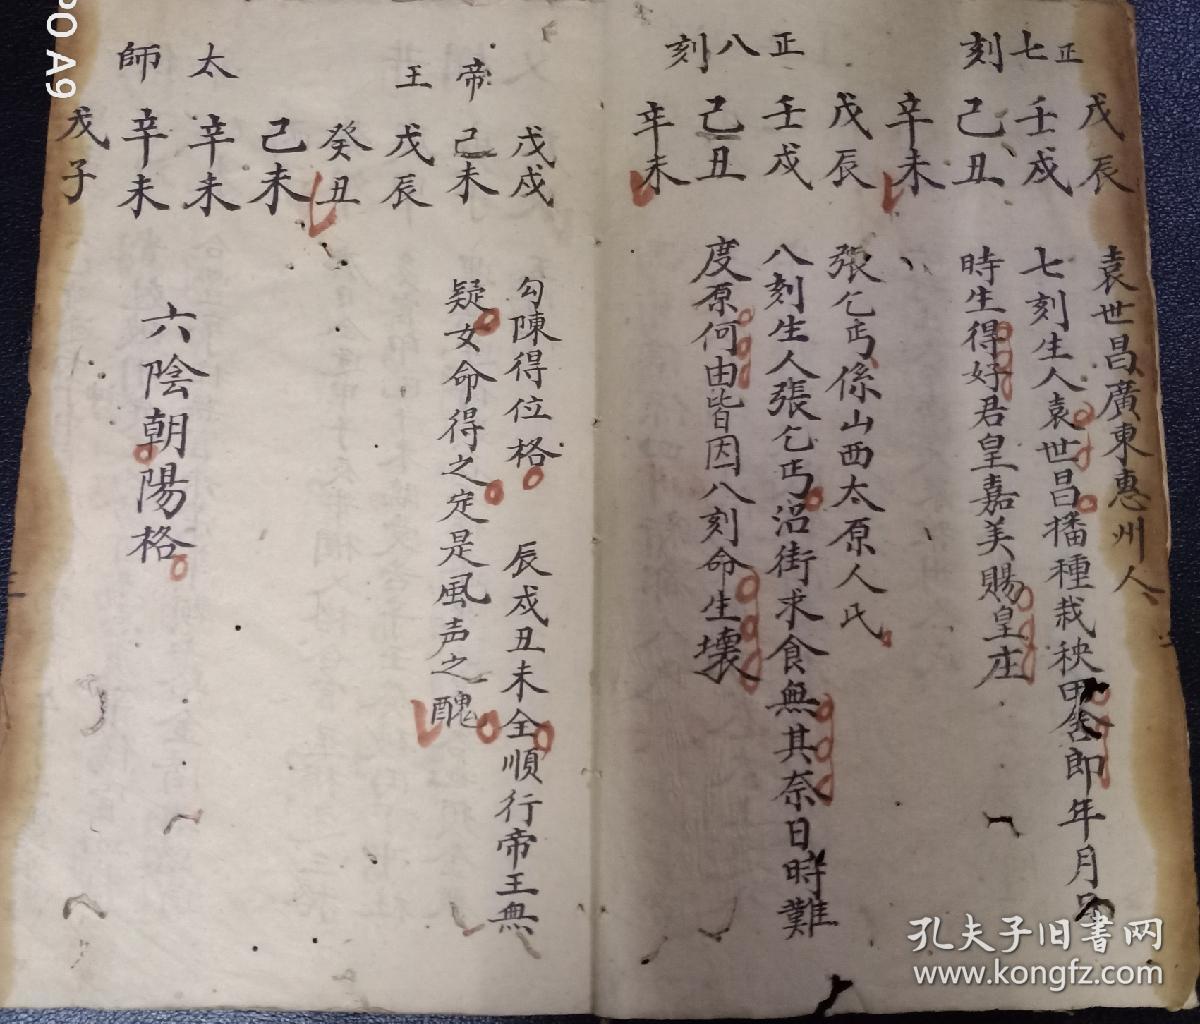 正七刻
戊辰
壬戌
己丑
辛未
袁世昌廣東惠州人
七刻生人袁世昌播種栽秧田舍郎年月日
時生得好君皇嘉美賜皇庄
正八刻
戊辰
壬戌
己丑
辛未
張乞丐係山西太原人氏
八刻生人張乞丐沿街求食無其奈日時難
度原何由皆因八刻命生壞
帝王
戊戌
己未
戊辰
癸丑
勾陳得位格 辰戌丑未全順行帝王無
疑女命得之定是風声之醜
太師
己未
辛未
辛未
戊子
六陰朝陽格
PO A9
孔夫子旧书网
www.kongfz.com